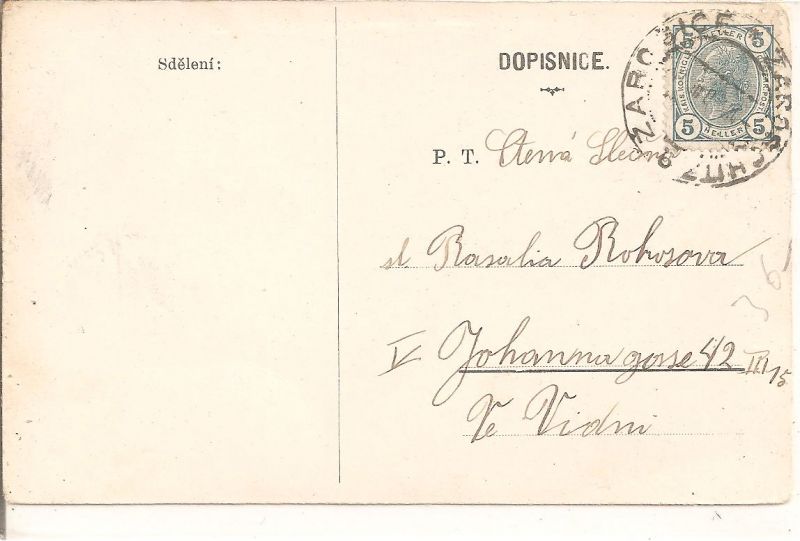 Sdělení:
DOPISNICE.
ZAROŠICE * ZAROSCHITZ
5 HELLER 5
5 HELLER 5
P. T. Ctená Slečna
sl. Rasalia Rokosova
V Johannagasse 42 III/15
Ve Vídni